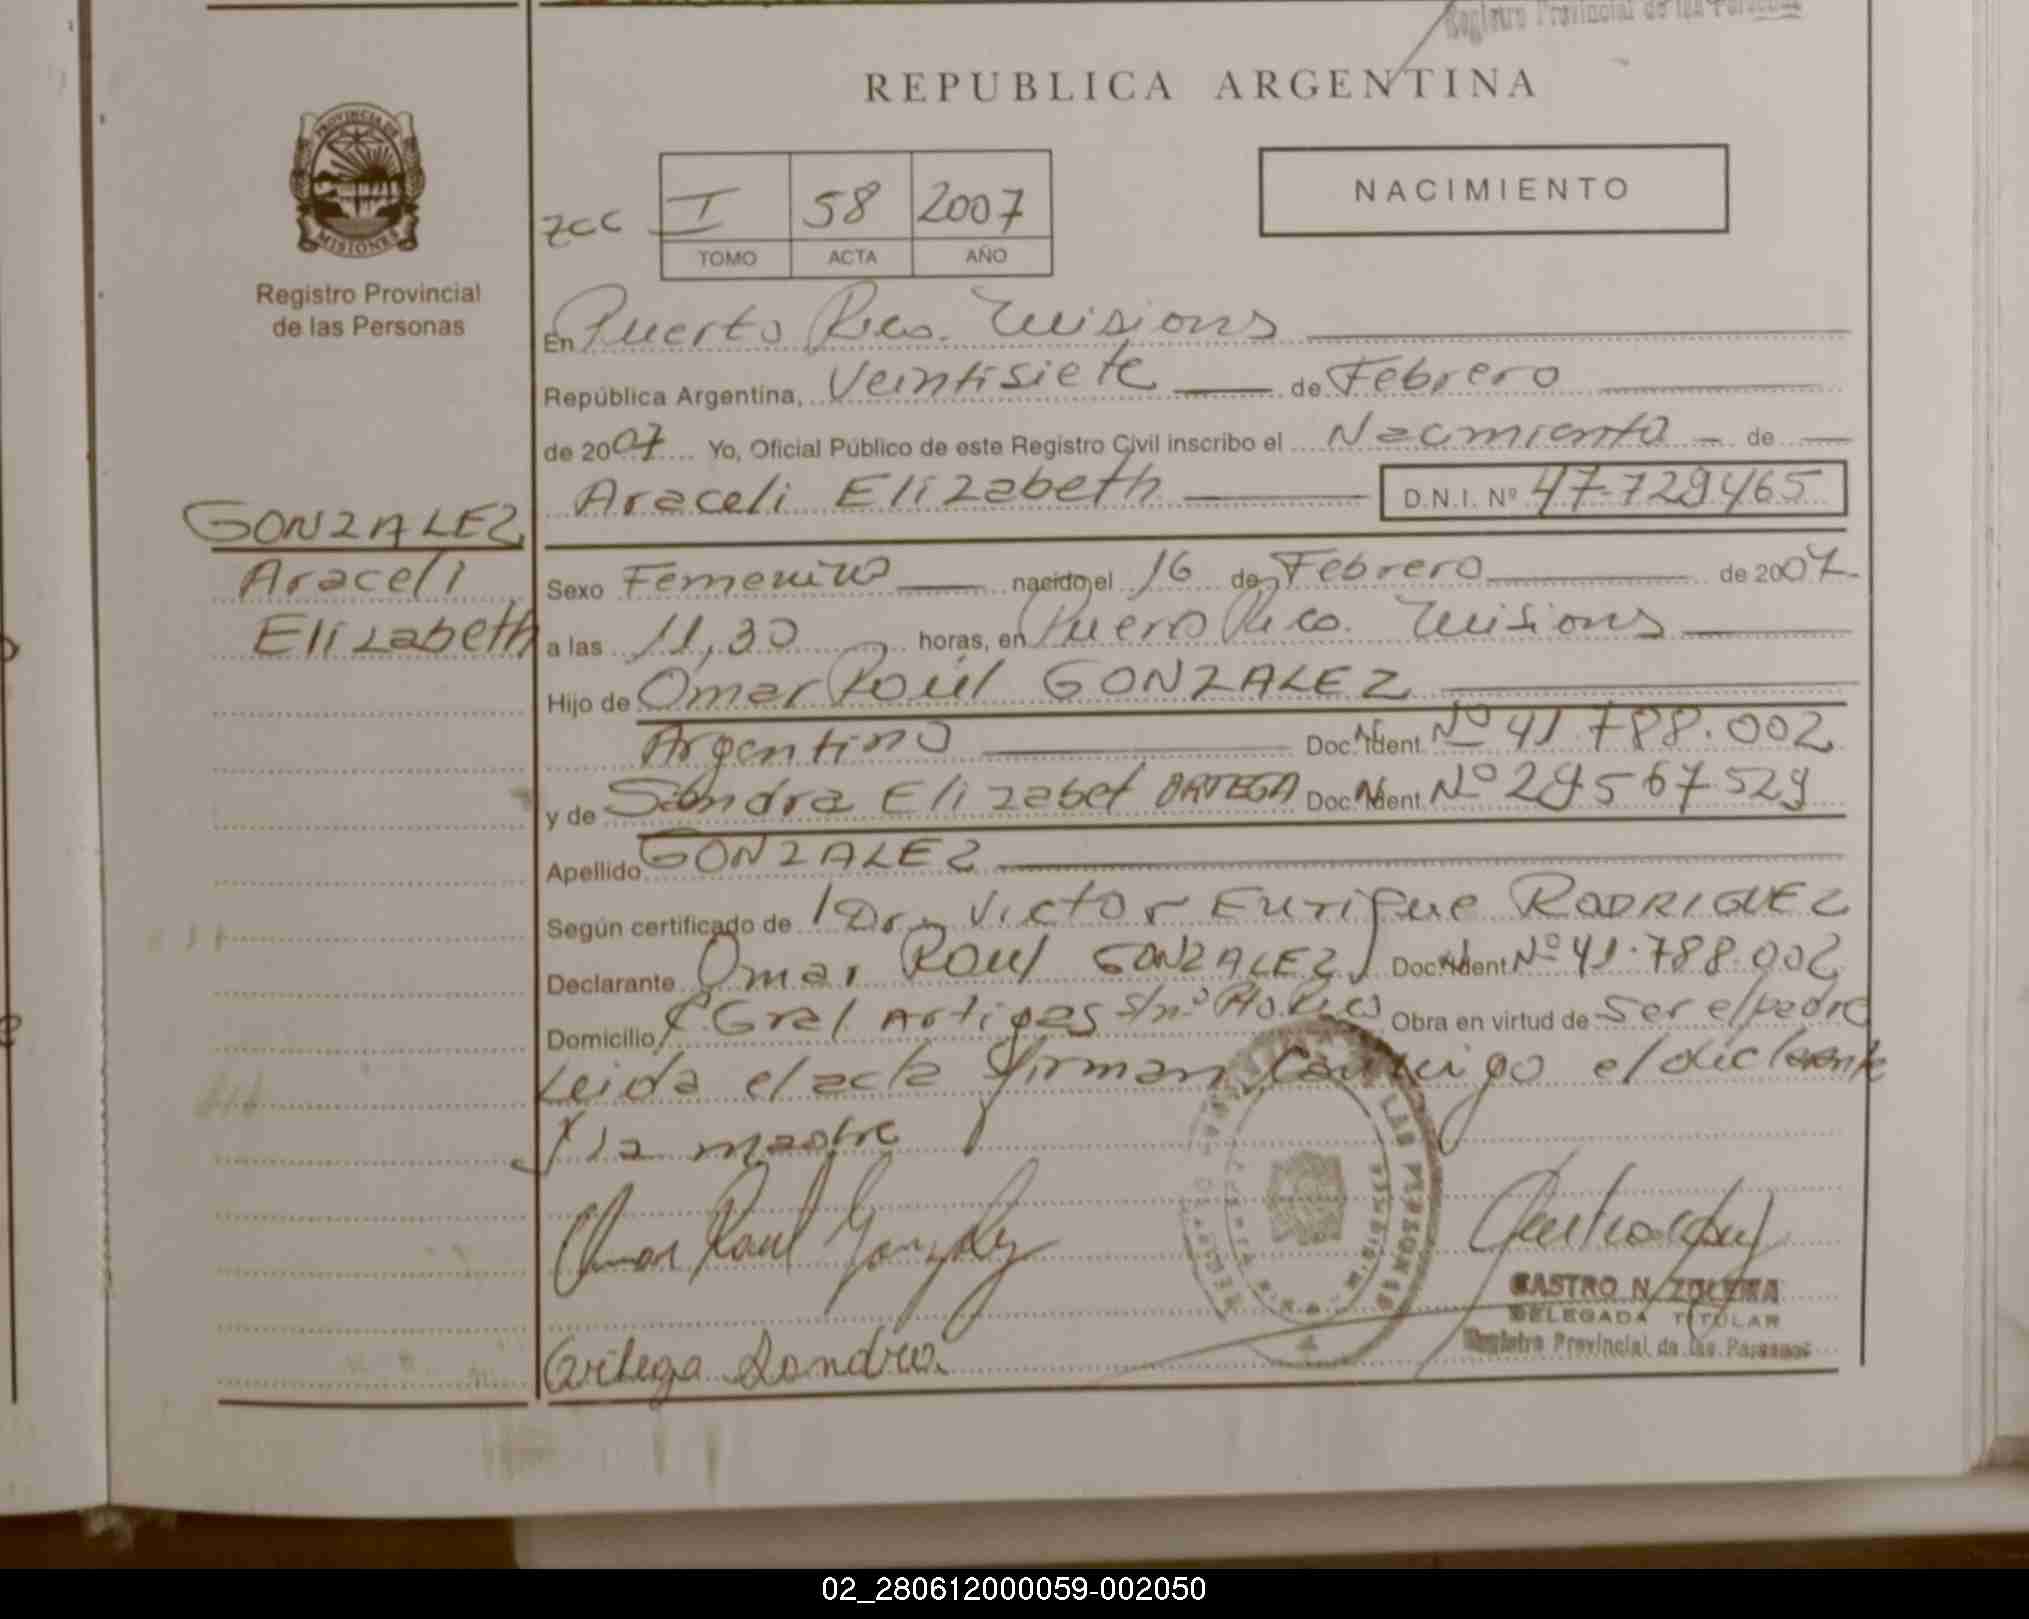 Registro Provincial de las Personas
REPUBLICA ARGENTINA
PROVINCIA DE
MISIONES
Registro Provincial
de las Personas
NACIMIENTO
zcc I 58 2007
TOMO ACTA AÑO
En Puerto Rico. Misiones
República Argentina, Veintisiete de Febrero
de 2007 Yo, Oficial Público de este Registro Civil inscribo el Nacimiento de
Araceli Elizabeth D.N.I. Nº 47.729465
GONZALEZ
Araceli
Elizabeth
Sexo Femenino nacido el 16 de Febrero de 2007
a las 11,30 horas, en Puerto Rico. Misiones
Hijo de Omar Raúl GONZALEZ
Argentino Doc. Ident. Nº 41.788.002
y de Sandra Elizabet ORTEGA Doc. Ident. Nº 29567529
Apellido GONZALEZ
Según certificado de Dr. Victor Enrique RODRIGUEZ
Declarante Omar Raul GONZALEZ Doc. Ident. Nº 41.788.002
Domicilio C. Gral Artigas s/nº Pto. Rico Obra en virtud de ser el padre
Leida el acta firman conmigo el declarante
y la madre
Omar Raul Gonzalez
Ortega Sandra
CASTRO N. ZULEMA
DELEGADA TITULAR
Registro Provincial de las Personas
02_280612000059-002050